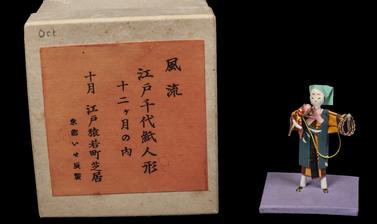 Oct
風流
江戸千代紙人形
十二ヶ月の内
十月 江戸猿若町芝居
東都いせ辰製